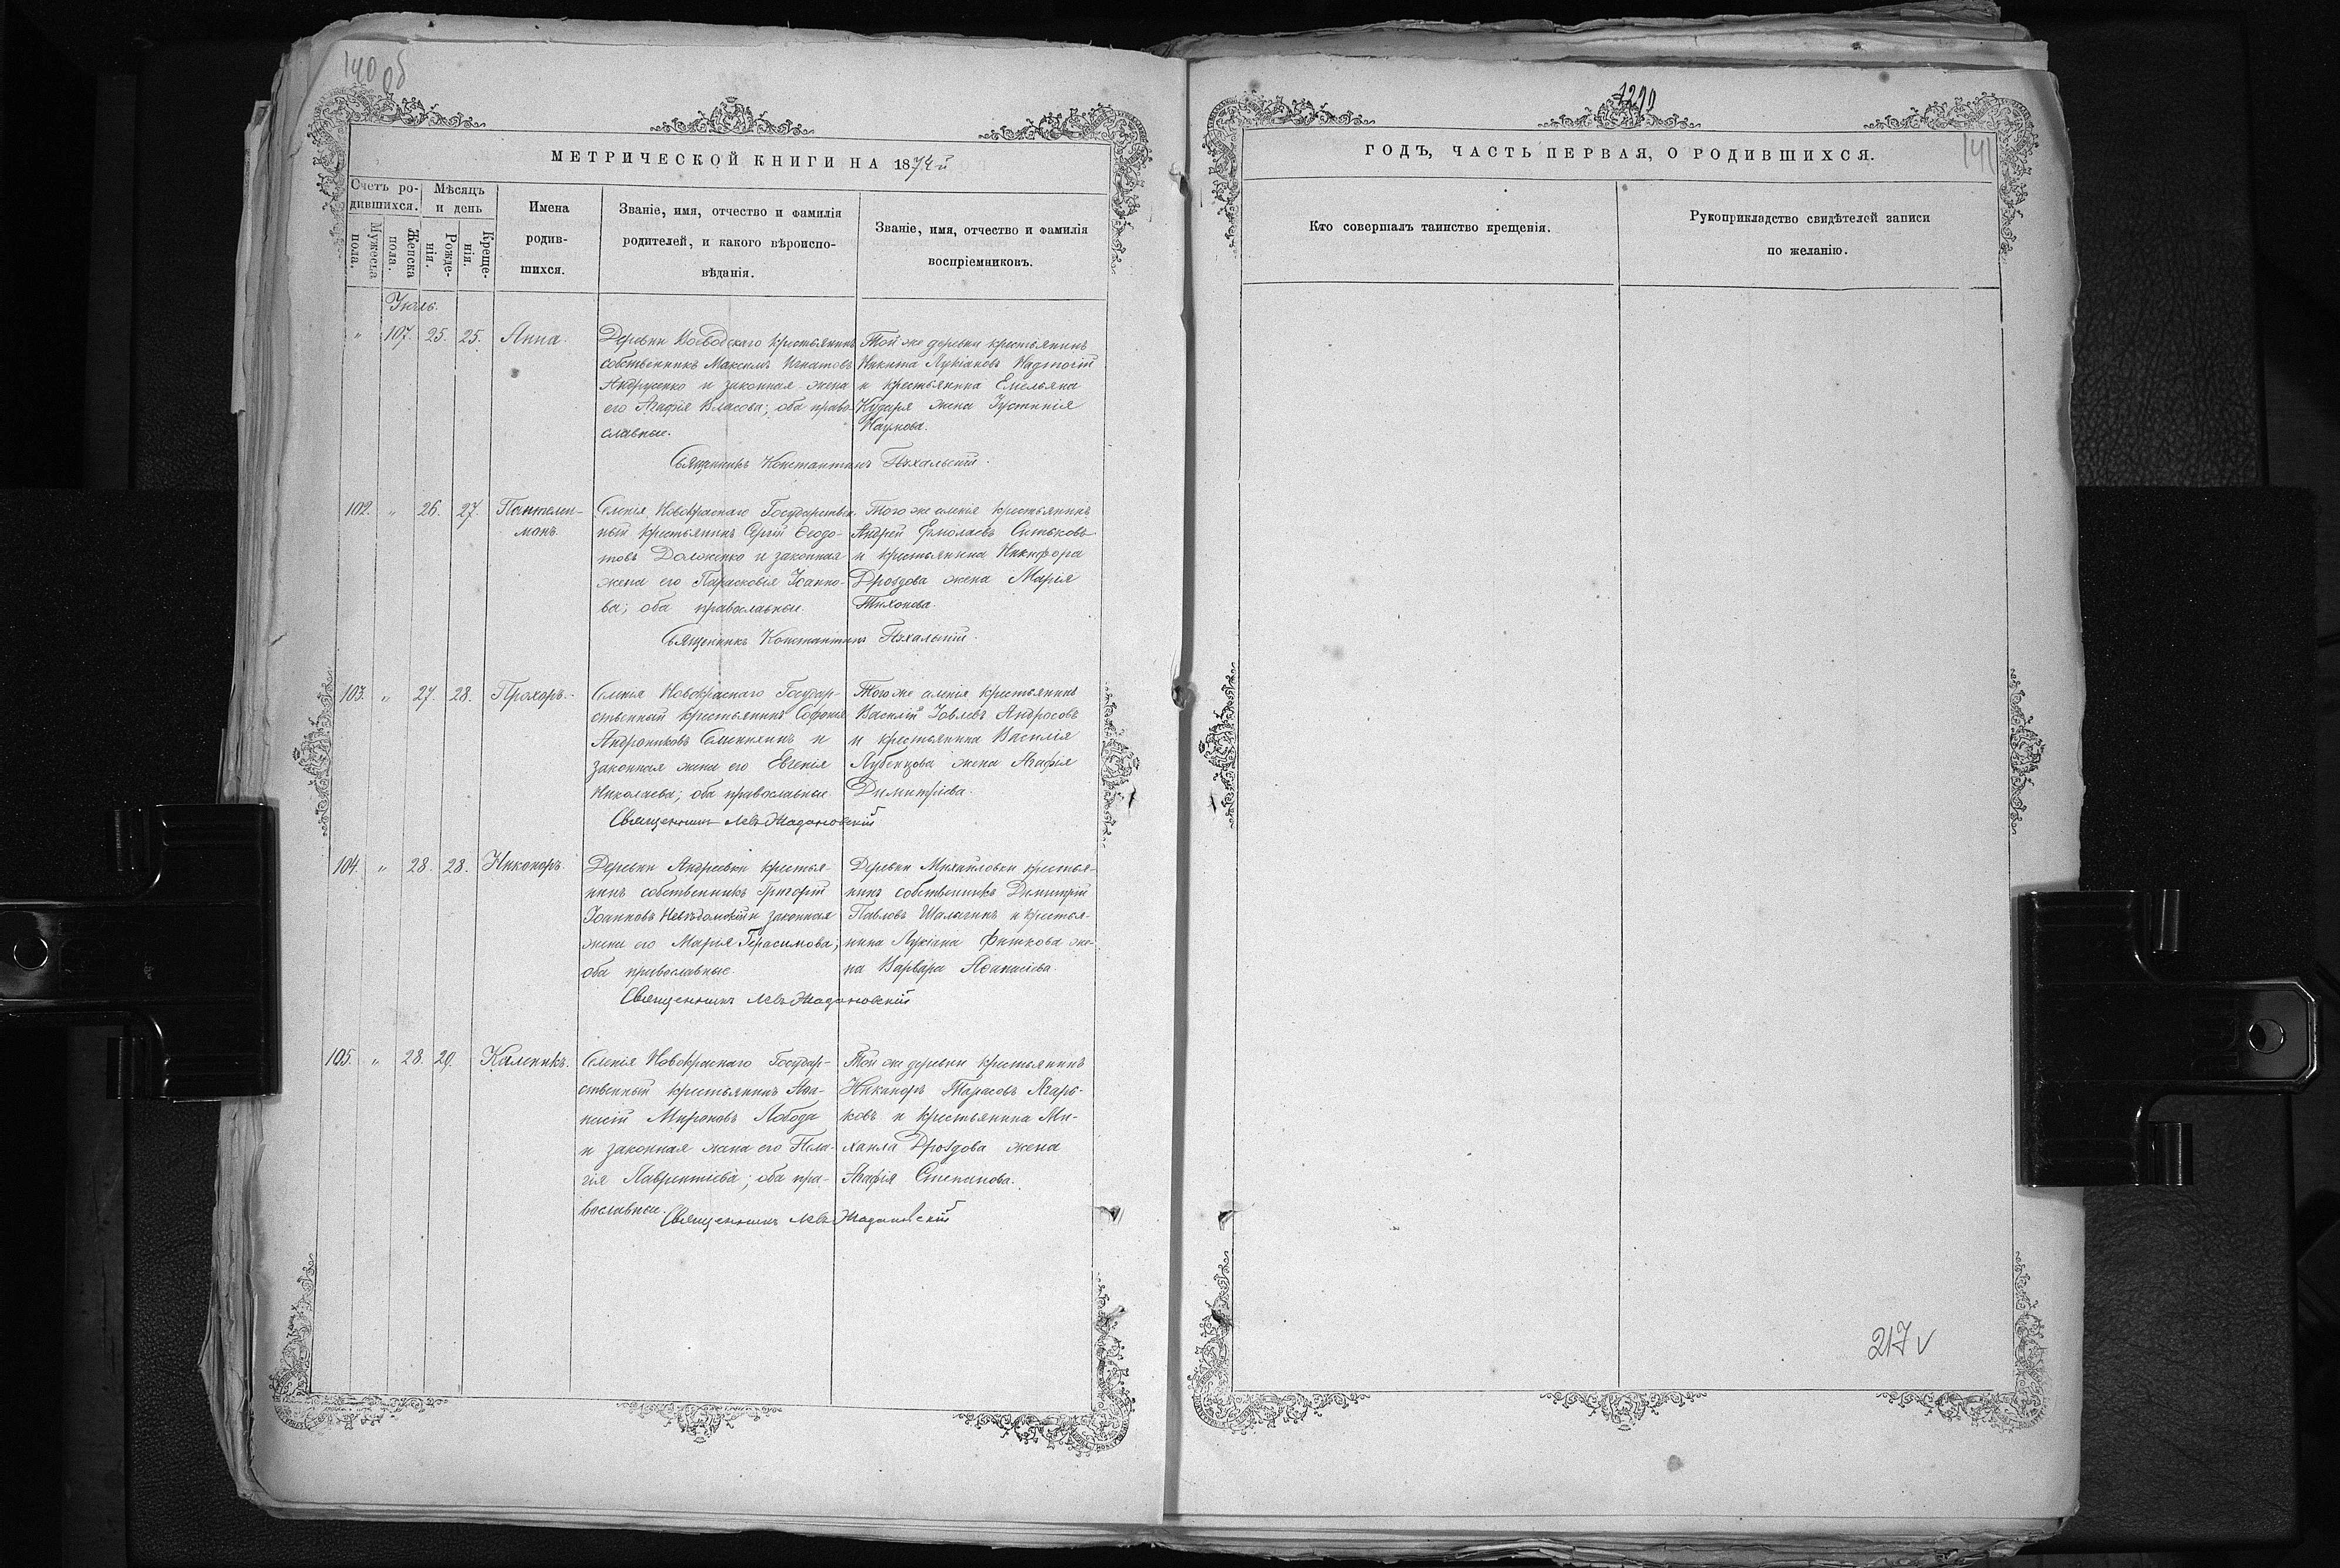 140 об
МЕТРИЧЕСКОЙ КНИГИ НА 1874й
Счетъ ро-
дившихся.
Мѣсяцъ
и день
Мужеска
пола.
Женска
пола.
Рожде-
нія.
Креще-
нія.
Имена
родив-
шихся.
Званіе, имя, отчество и фамилія
родителей, и какого вѣроиспо-
вѣданія.
Званіе, имя, отчество и фамилія
воспріемниковъ.
Іюль.
" 107. 25. 25. Анна.
Деревни Воеводскаго крестьянинъ
собственникъ Максимъ Игнатовъ
Андрусенко и законная жена
его Агафія Власова; оба право-
славные.
Той же деревни крестьянинъ
Никита Лукіановъ
и крестьянина Емельяна
Кударя жена Іустинія
Наумова.
Священникъ Константинъ
102. " 26. 27. Пантелеи-
монъ.
Селенія Новокраснаго Государствен-
ный крестьянинъ Сергій Ѳеодо-
товъ Долженко и законная
жена его Парасковія Іоанно-
ва; оба православные.
Того же селенія крестьянинъ
Андрей Ермолаевъ Ситьковъ
и крестьянина Никифора
Дроздова жена Марія
Тихонова.
Священникъ Константинъ
103. " 27. 28. Прохоръ.
Селенія Новокраснаго Государ-
ственный крестьянинъ Софонія
Андрониковъ и
законная жена его Евгенія
Николаева; оба православные
Того же селенія крестьянинъ
Василій Іовлевъ Андросовъ
и крестьянина Василія
Лубенцова жена Агафія
Димитріева.
Священникъ Левъ Жадановскій
104. " 28. 28. Никаноръ.
Деревни Андреевки крестья-
нинъ собственникъ Григорій
Іоанновъ Невѣдомскій и законная
жена его Марія Герасимова;
оба православные.
Деревни Михайловки крестья-
нинъ собственникъ Димитрій
Павловъ Шалыгинъ и крестья-
нина Лукіана Фишкова же-
на Варвара Аѳанасіева.
Священникъ Левъ Жадановскій
105. " 28. 29. Калиникъ.
Селенія Новокраснаго Государ-
ственный крестьянинъ Аѳа-
насій Мироновъ Лобода
и законная жена его Пела-
гія Лаврентіева; оба пра-
вославные.
Той же деревни крестьянинъ
Никаноръ Тарасовъ Агарь-
ковъ и крестьянина Ми-
хаила Дроздова жена
Агафія Степанова.
Священникъ Левъ Жадановскій
1290
141
ГОДЪ, ЧАСТЬ ПЕРВАЯ, О РОДИВШИХСЯ.
Кто совершалъ таинство крещенія.
Рукоприкладство свидѣтелей записи
по желанію.
217 v